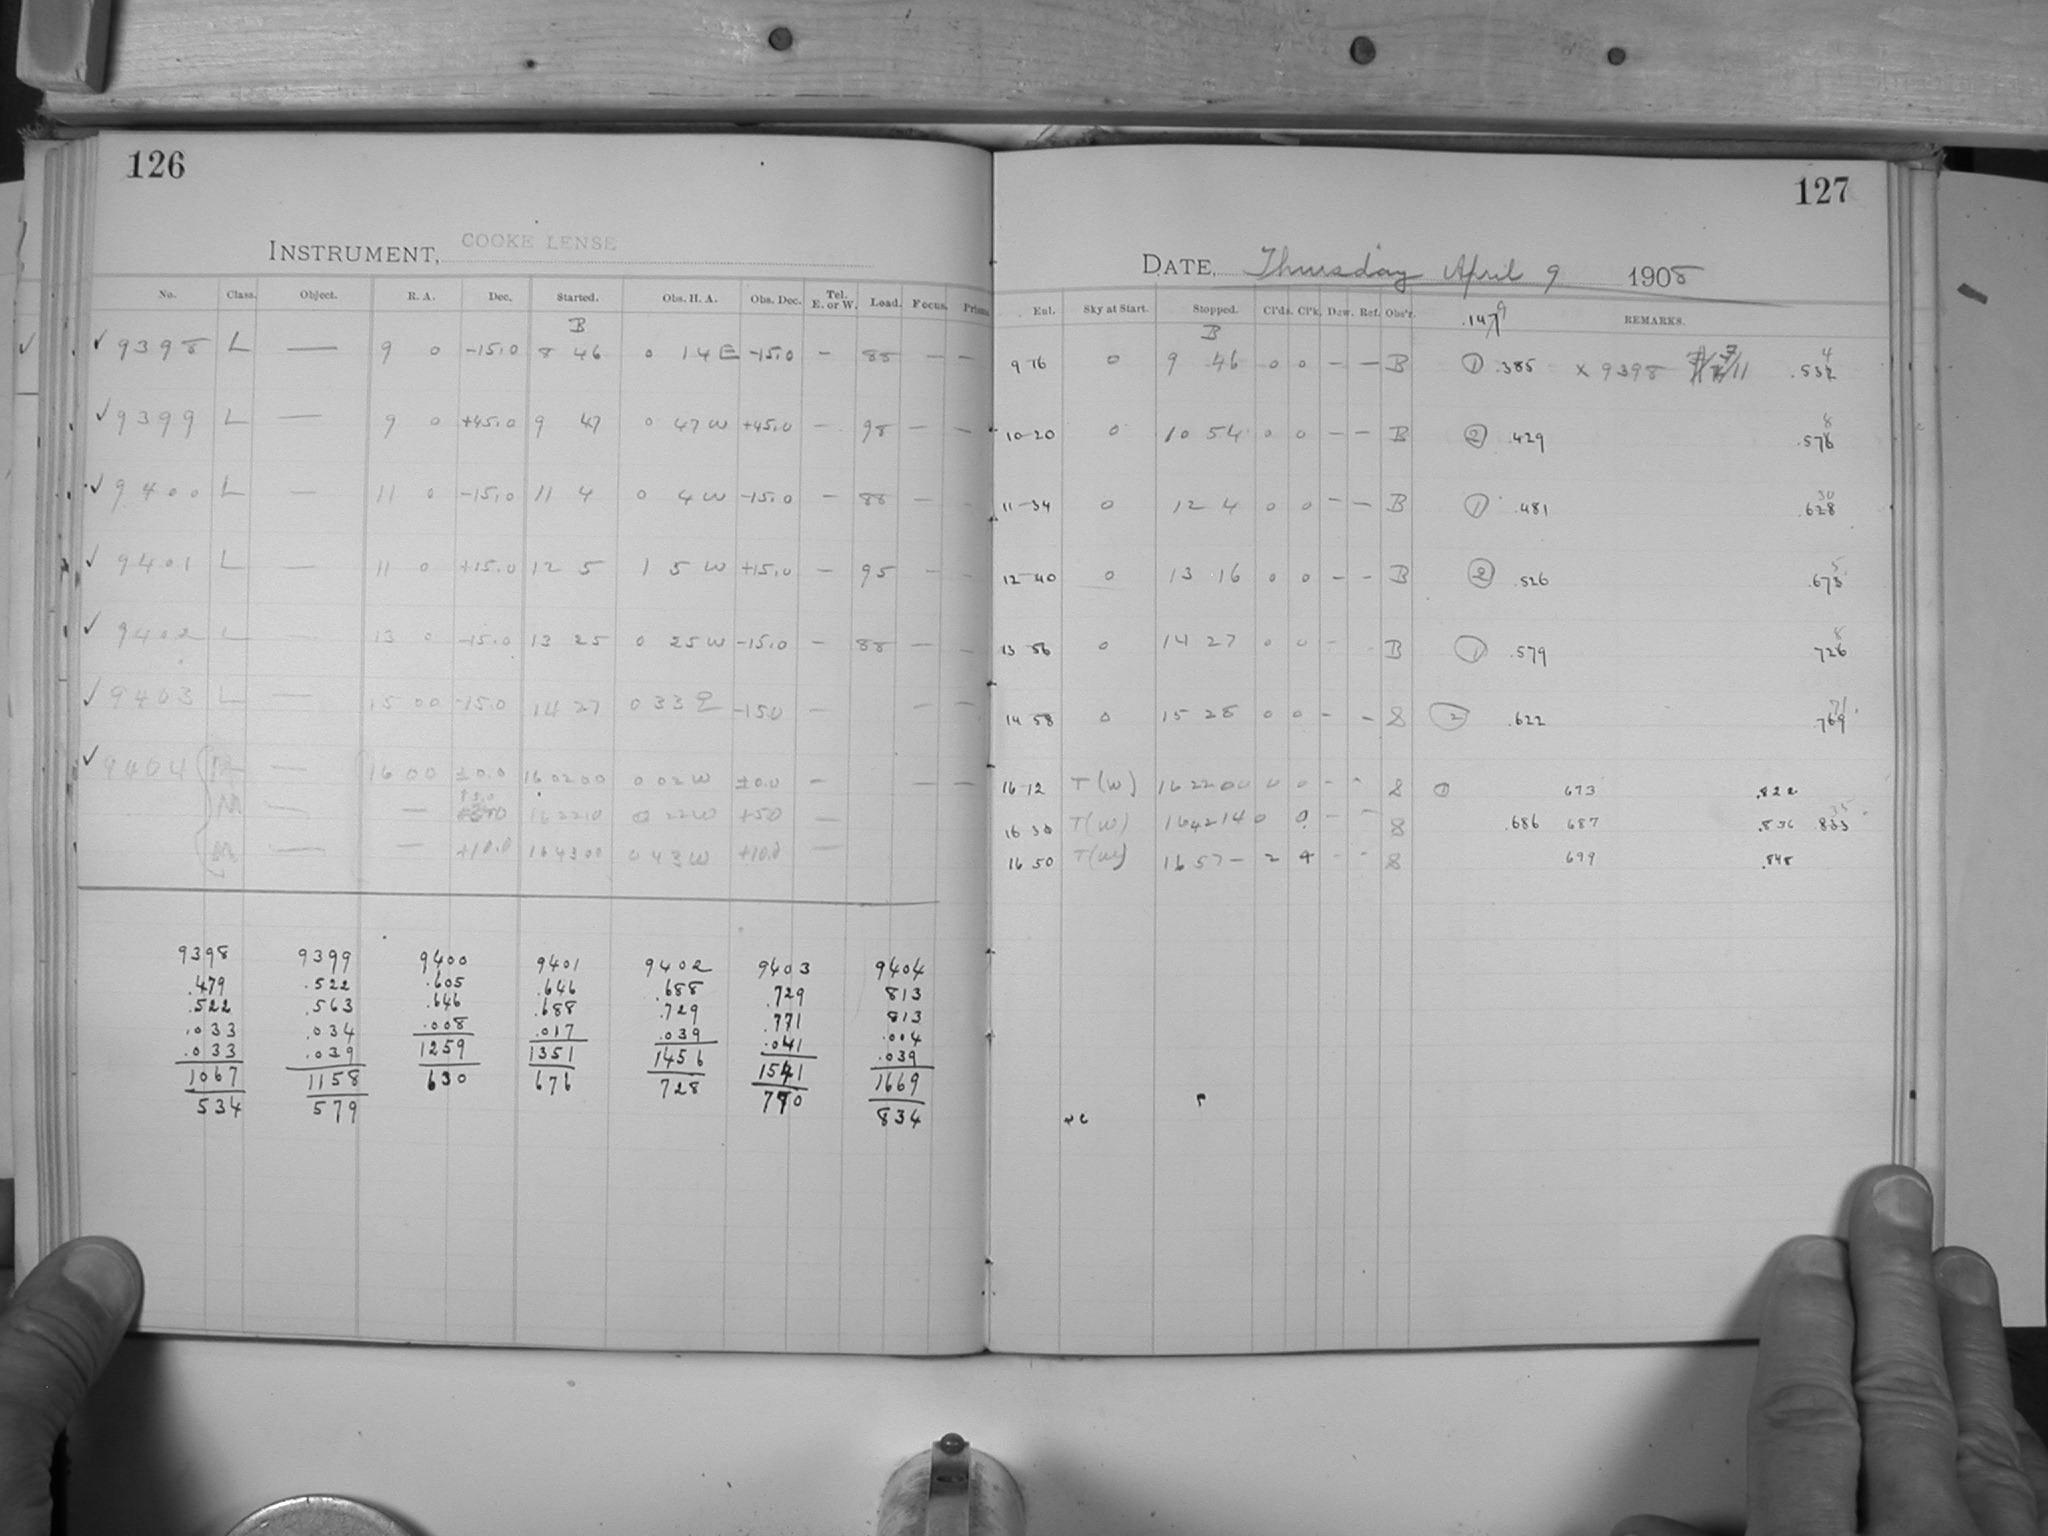 126
INSTRUMENT, COOKE LENSE
No. Class. Object. R. A. Dec. Started. Obs. H. A. Obs. Dec. Tel. E. or W. Load. Focus. Prisms
B
✓ 9398 L — 9 0 -15.0 8 46 0 14 E -15.0 — 88 — —
✓ 9399 L — 9 0 +45.0 9 47 0 47 W +45.0 — 98 — —
✓ 9400 L — 11 0 -15.0 11 4 0 4 W -15.0 — 88 — —
✓ 9401 L — 11 0 +15.0 12 5 1 5 W +15.0 — 95 — —
✓ 9402 L — 13 0 -15.0 13 25 0 25 W -15.0 — 88 — —
✓ 9403 L — 15 00 -15.0 14 27 0 33 E -150 — — —
✓ 9404 M — 16 00 ±0.0 16 02 00 0 02 W ±0.0 — — —
M — — 16 22 0 0 22 W +50 —
M — — +10.0 16 43 00 0 43 W +10.0 —
9398 9399 9400 9401 9402 9403 9404
.479 .522 .605 .646 .688 .729 813
.522 .563 .646 .688 .729 .771 813
.033 .034 .008 .017 .039 .041 .004
.033 .039 1259 1351 1456 1541 .039
1067 1158 630 676 728 770 1669
534 579 834
127
DATE, Thursday April 9 1908
Eul. Sky at Start. Stopped. Cl'ds. Cl'k. Dew. Ref. Obs'r. .147 9 REMARKS.
B
9 16 0 9 46 0 0 — — B ① .385 × 9398 .532 4
10-20 0 10 54 0 0 — — B ② .429 .576 8
11-34 0 12 4 0 0 — — B ① .481 .628 30
12-40 0 13 16 0 0 — — B ② .526 .673 5
13 56 0 14 27 0 0 — B ① .579 726 8
14 58 0 15 28 0 0 — — S ② .622 .769 71
16-12 T (W) 16 22 00 0 0 — — S ① 673 .822
16 30 T (W) 16 42 14 0 0 — — S .686 687 .836 833 35
16 50 T (W) 16 57 — 2 4 — — S 699 .848